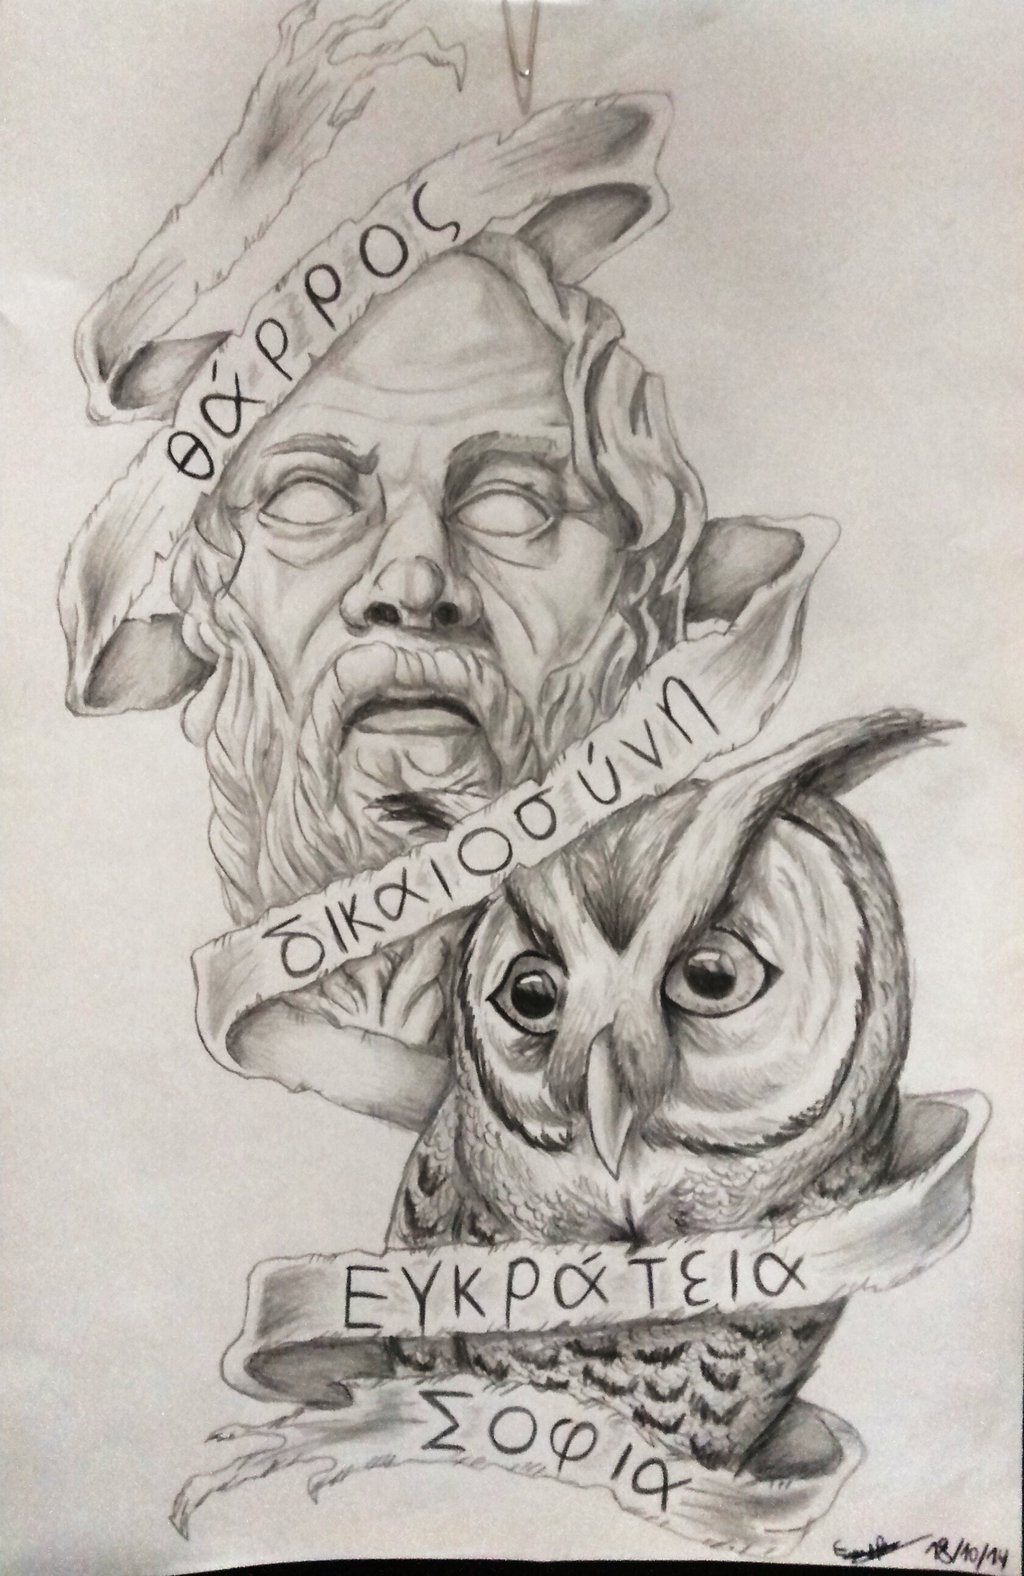 θάρρος
δικαιοσύνη
Εγκράτεια
Σοφια
18/10/14